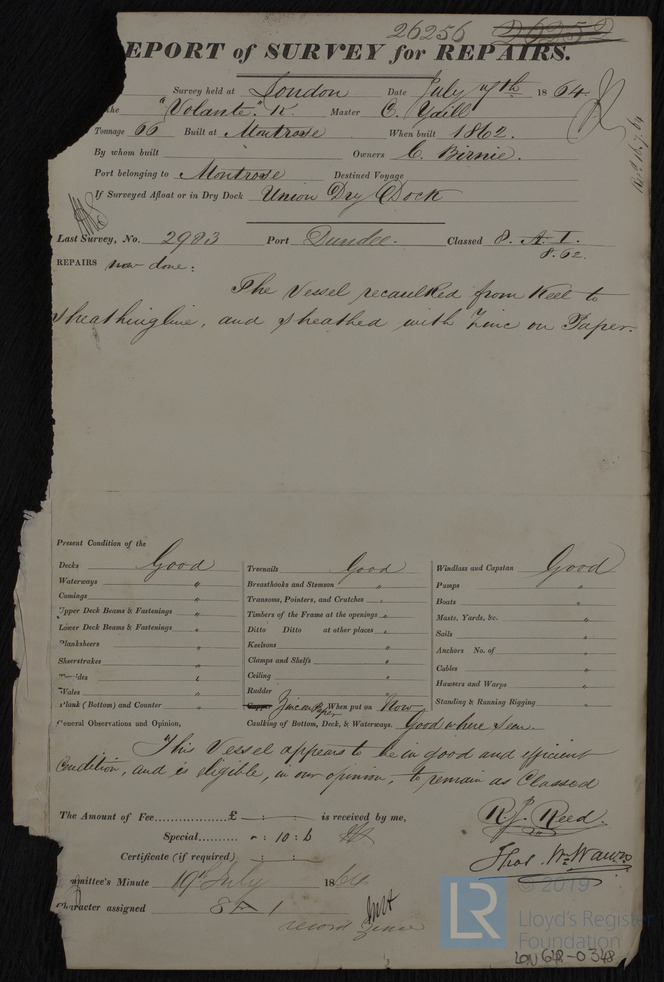 26256 26252
EPORT of SURVEY for REPAIRS.
Survey held at London Date July 7th 1864
the "Volante." K. Master C. Yaill
Tonnage 66 Built at Montrose When built 1862.
By whom built Owners C. Birnie.
Port belonging to Montrose Destined Voyage
If Surveyed Afloat or in Dry Dock Union Dry Dock
Last Survey, No. 2983 Port Dundee. Classed 8. A. 1.
8.62.
REPAIRS now done:
The Vessel recaulked from Keel to
sheathing line, and sheathed with Zinc on Paper.
Present Condition of the
Decks Good
Waterways "
Comings "
Upper Deck Beams & Fastenings "
Lower Deck Beams & Fastenings "
Planksheers "
Sheerstrakes "
ides "
Wales "
Plank (Bottom) and Counter "
Treenails Good
Breasthooks and Stemson "
Transoms, Pointers, and Crutches "
Timbers of the Frame at the openings "
Ditto Ditto at other places "
Keelsons "
Clamps and Shelfs "
Ceiling "
Rudder "
Copper Zinc on Paper When put on Now
Windlass and Capstan Good
Pumps "
Boats "
Masts, Yards, &c. "
Sails "
Anchors No. of "
Cables "
Hawsers and Warps "
Standing & Running Rigging "
General Observations and Opinion, Caulking of Bottom, Deck, & Waterways. Good where seen.
This Vessel appears to be in good and efficient
Condition, and is eligible, in our opinion, to remain as Classed
The Amount of Fee £ is received by me,
Special : 10 : 6
Certificate (if required) : :
R. J. Reed.
Thos. Wm. Wawn
mmittee's Minute 19th July 1864
Character assigned 8 A 1
record Zinc
© 2019
LR Lloyd's Register
Foundation
LON 648-0348